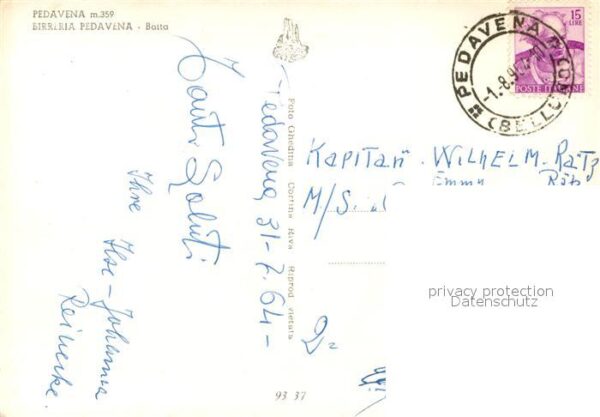 PEDAVENA m.359
BIRRERIA PEDAVENA - Botte
Tanti Saluti
Ihre
Ilse-Johanna
Reinecke.
Pedavena 31-7.64-
Foto Ghedina Cortina Riva Riprod vietata
93 37
15
LIRE
POSTE ITALIANE
PEDAVENA
(BELLUNO)
KAPITÄN. WILHELM. RATZ
Emmy
M/S.
privacy protection
Datenschutz